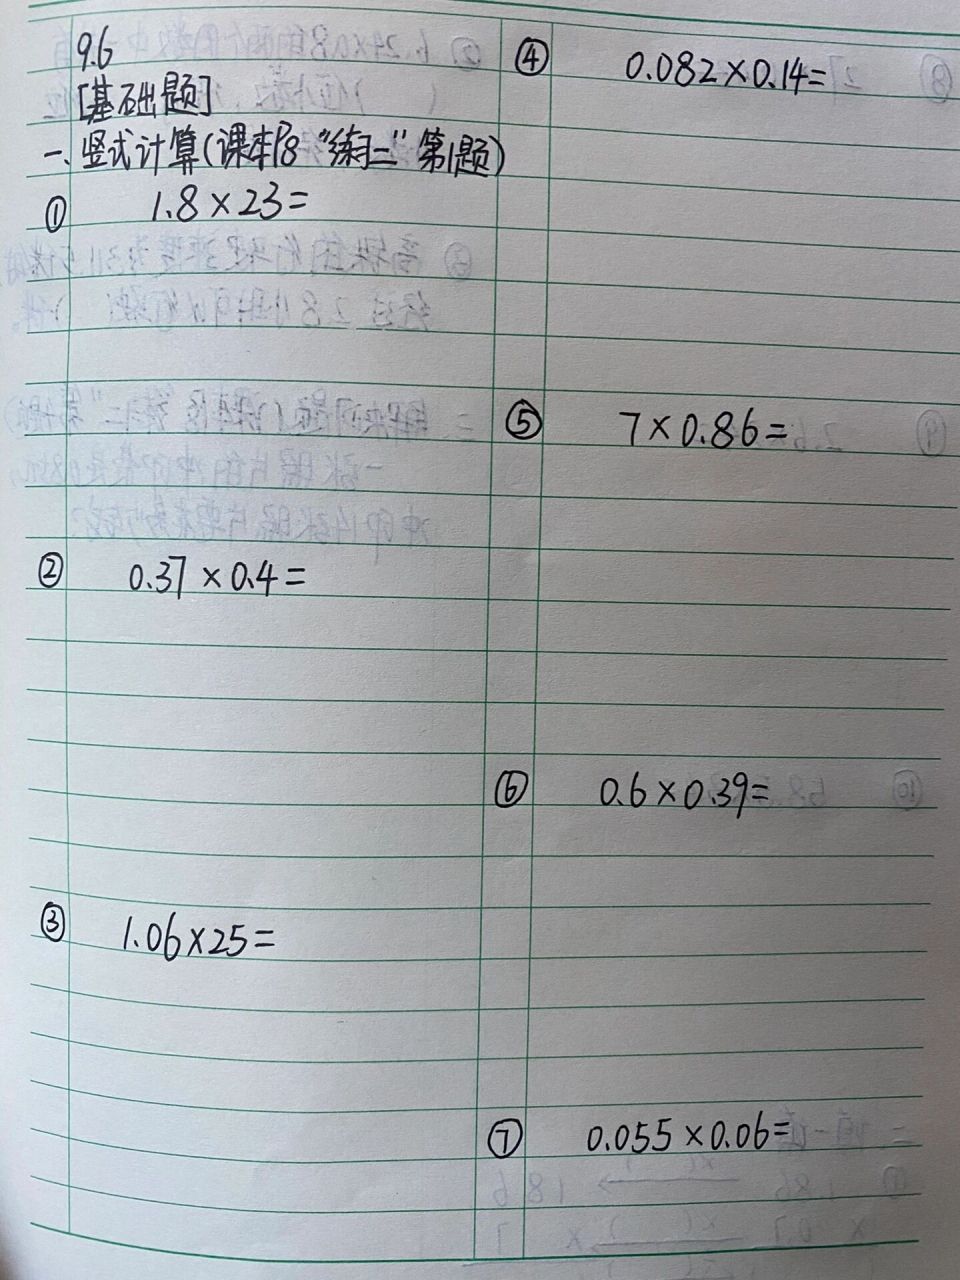 9.6
[基础题]
一、竖式计算(课本P8“练习二”第1题)
① 1.8×23=
② 0.37×0.4=
③ 1.06×25=
④ 0.082×0.14=
⑤ 7×0.86=
⑥ 0.6×0.39=
⑦ 0.055×0.06=